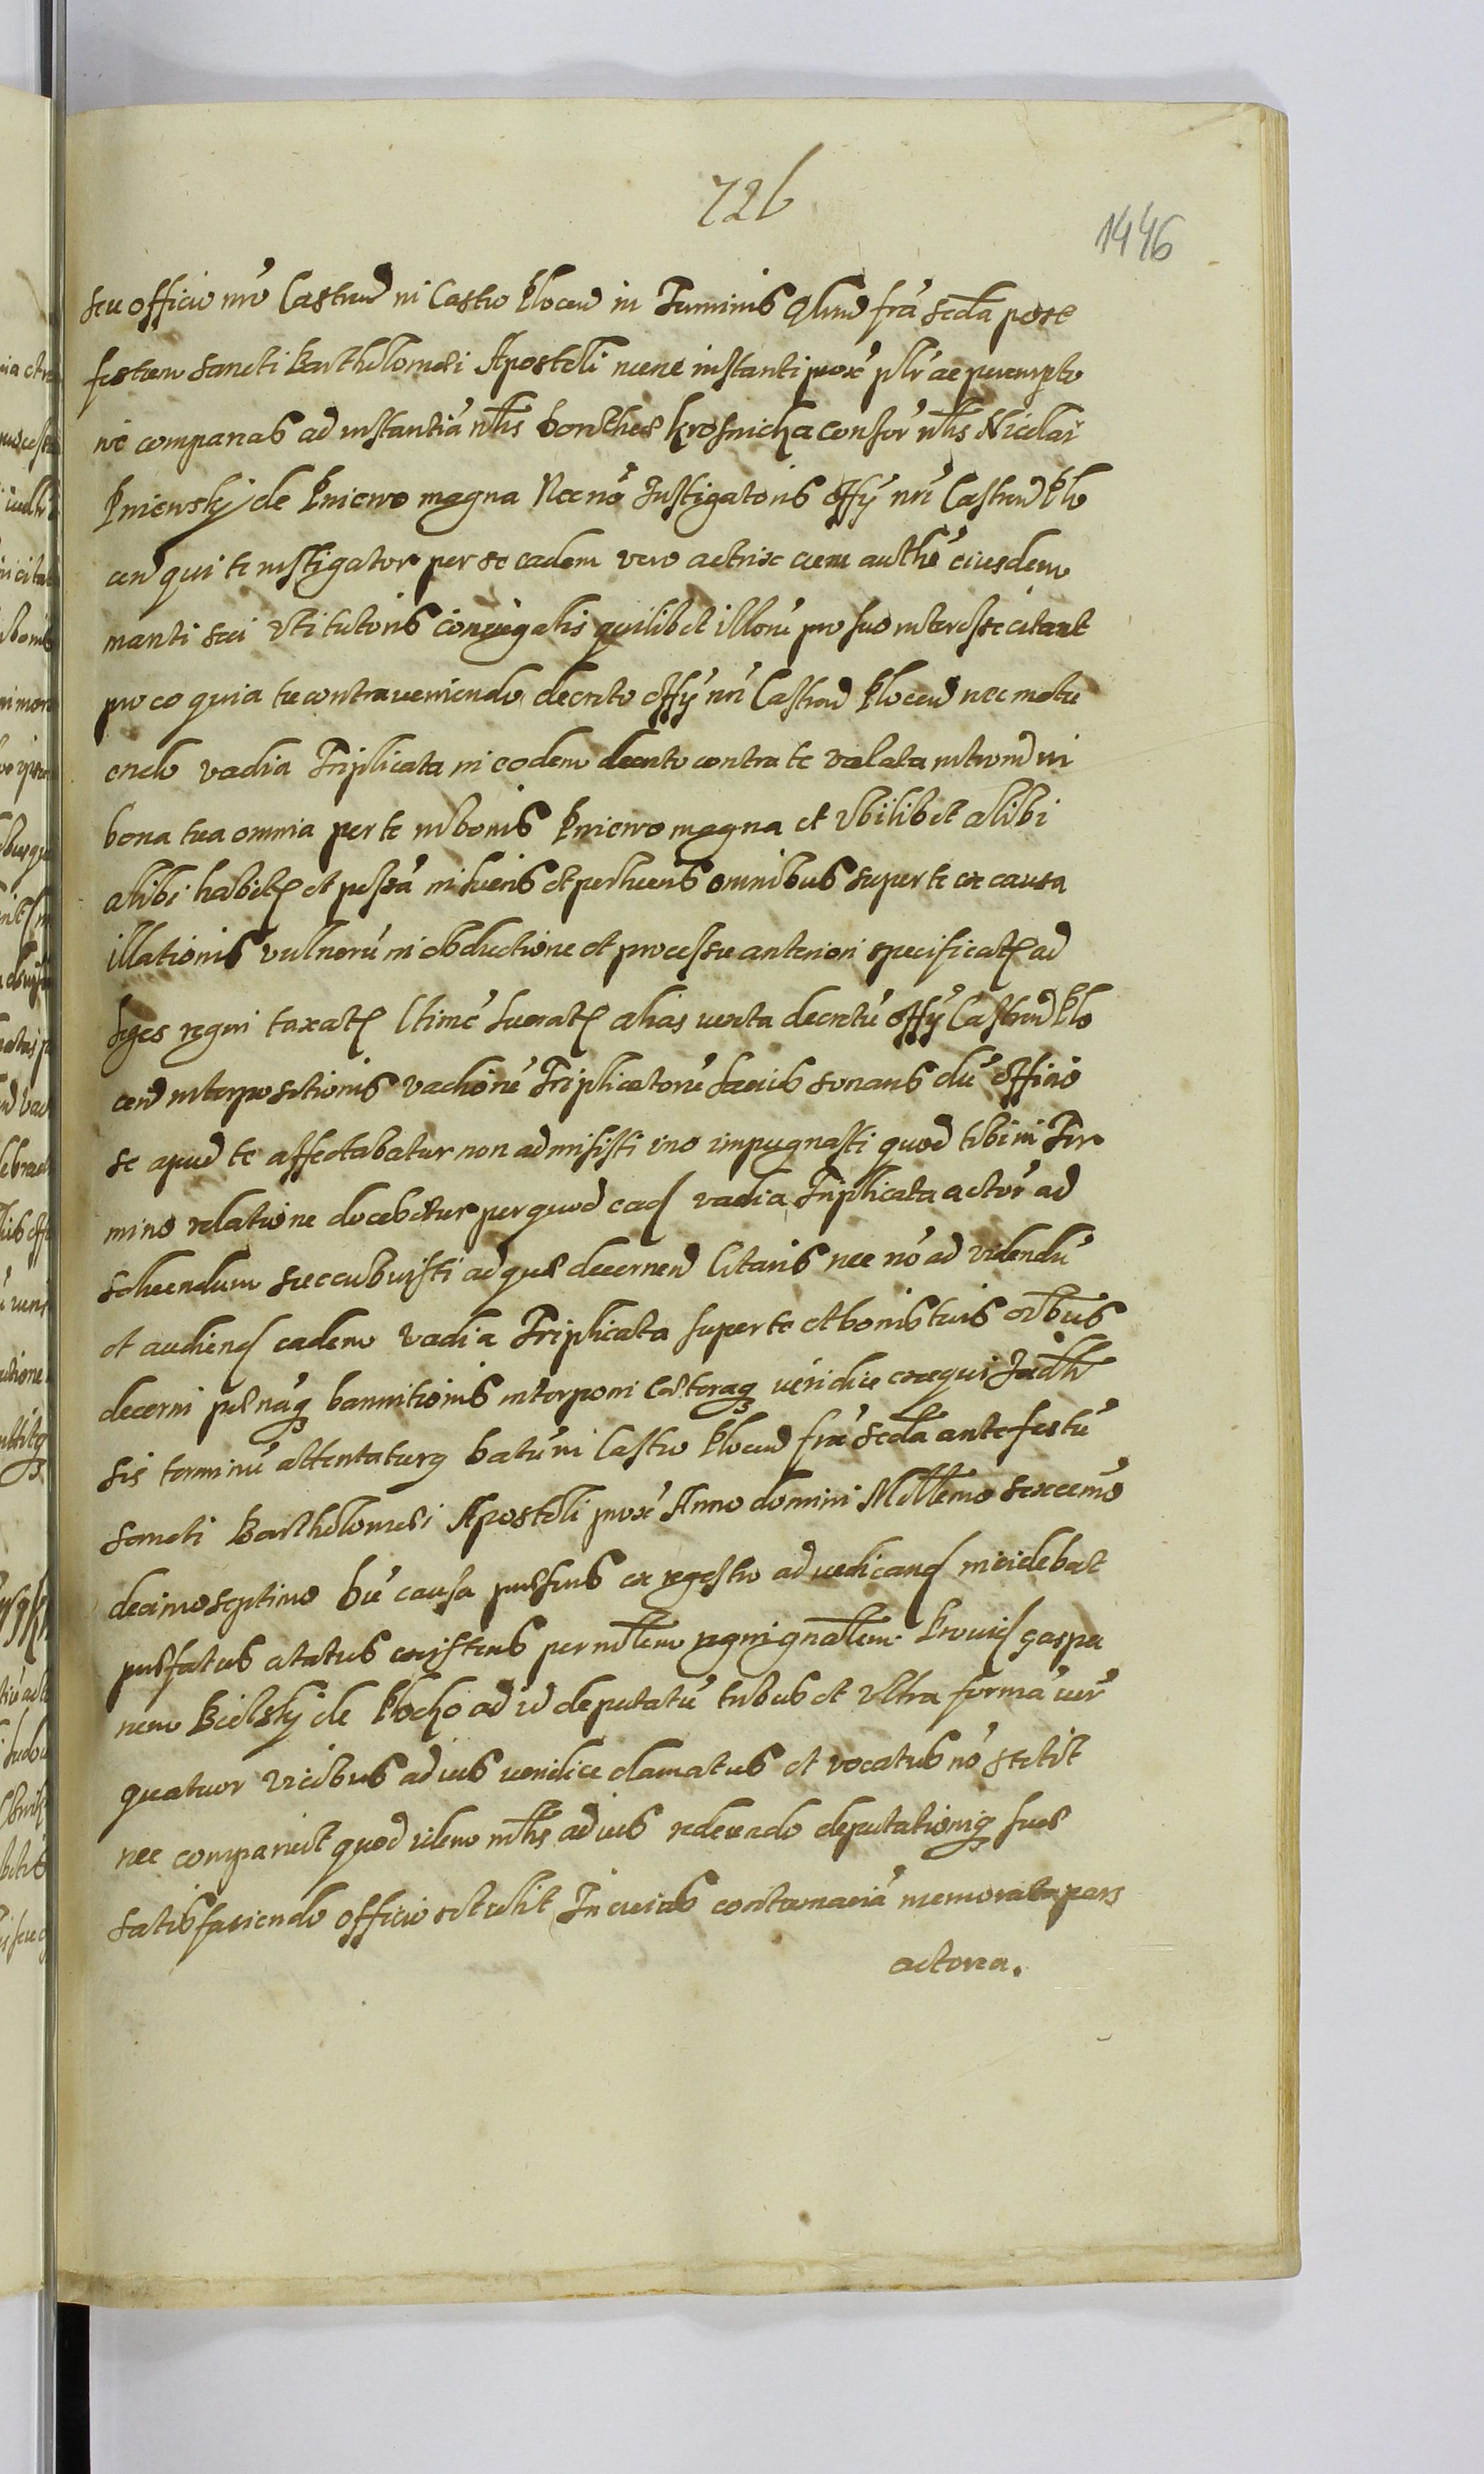 726
1446
seu officio nro Castren in Castro Plocen in Terminis Qlimd fria scda post
festum sancti Bartholomei Apostoli nunc instanti prox pllr ac perempto
rie compareas ad instantia nblis Dorothea Krosnicka consor nblis Nicolai
Pniewsky de Pniewo magna Necno Instigatoris offy nri Castren Plo
cen qui te instigator per se eadem vero actrix cum authe eiusdem
mariti sui vti tutoris coniugalis quilibet illoru pro suo interesse citant
pro eo quia tu contraueniendo decreto offy nri Castren Plocen nec metu
endo vadia Triplicata in eodem decreto contra te vallata intromi in
bona tua omnia per te in bonis Pniewo magna et vbilibet alibi
alibi habit et possa in lucris et perlucris omnibus super te ex causa
illationis vulneru in obductione et processu anteriori specificat ad
leges regni taxat ltime lucrat alias iuxta decretu offy Castren Plo
cen interpositionis vadioru Triplicatoru lacius sonans du officio
se apud te affectabatur non admisisti imo impugnasti quod tibi in Ter
mino relatione docebitur per quod ead vadia Triplicata actori ad
soluendum succubuisti ad que decernen Citaris nec no ad videndu
et audiend eadem vadia Triplicata super te et bonis tuis oibus
decerni poenaq bannitionis interponi Caeteraq iuridice exequi Judlr
sis terminu attentaturq Datu in Castro Plocen fria scda ante festu
sancti Bartholomei Apostoli prox Anno domini Millemo sexcemo
decimoseptimo Du causa praesens ex regestro ad iudicand incidebat
praefatus citatus existens per mblem regni gnalem Prouid Caspa
rem Bielsky de Plocko ad id deputatu tribus et vltra forma iuris
quatuor vicibus ad ius iuridice clamatus et vocatus no stetit
nec comparuit quod idem mblis ad ius redeundo deputationiq suae
satisfaciendo officio retulit In cuius contumacia memorata pars
actorea.